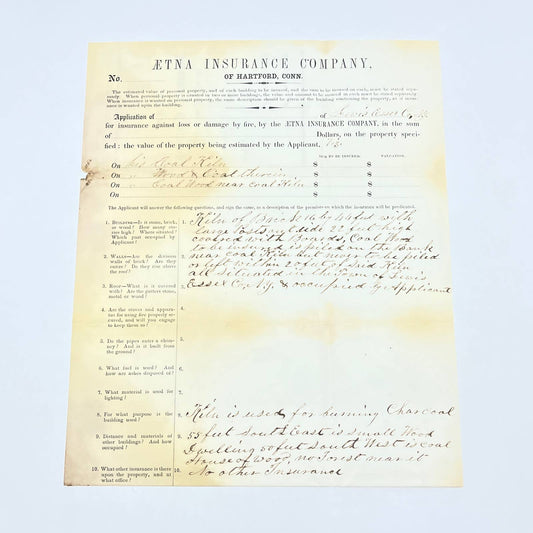 ÆTNA INSURANCE COMPANY,
OF HARTFORD, CONN.
No.
The estimated value of personal property, and of each building to be insured, and the sum to be insured on each, must be stated separately. When personal property is situated in two or more buildings, the value and amount to be insured in each, must be stated separately. When insurance is wanted on personal property, the same description should be given of the building containing the property, as if insurance was wanted upon the building.
Application of of Lewis Essex Co
for insurance against loss or damage by fire, by the ÆTNA INSURANCE COMPANY, in the sum
of Dollars, on the property speci-
fied: the value of the property being estimated by the Applicant, viz.
SUM TO BE INSURED. VALUATION.
On Coal Kiln $ $
On " Wood & Coal therein $ $
On " Coal Wood near Coal Kiln $ $
On $ $
The Applicant will answer the following questions, and sign the same, as a description of the premises on which the insurance will be predicated.
1. BUILDING—Is it stone, brick, or wood? How many stories high? Where situated? Which part occupied by Applicant?
1. Kiln of Brick 16 by 14 feet with
large 22 feet high
covered with Boards, Coal Wood
to be insured is piled on the Bank
2. WALLS—Are the division walls of brick? Are they entire? Do they rise above the roof?
2. near coal Kiln but never to be piled
or left within 20 feet of said Kiln
all situated in the Town of Lewis
3. ROOF—What is it covered with? Are the gutters stone, metal or wood?
3. Essex Co. N.Y. & occupied by Applicant
4. Are the stoves and apparatus for using fire properly secured, and will you engage to keep them so?
4.
5. Do the pipes enter a chimney? And is it built from the ground?
5.
6. What fuel is used? And how are ashes disposed of?
6.
7. What material is used for lighting?
7.
8. For what purpose is the building used?
8. Kiln is used for burning Charcoal
9. Distance and materials of other buildings? And how occupied?
9. 55 feet South East is small Wood
Dwelling 50 feet South West is coal
House of wood, no Forest near it
10. What other insurance is there upon the property, and at what office?
10. No other Insurance